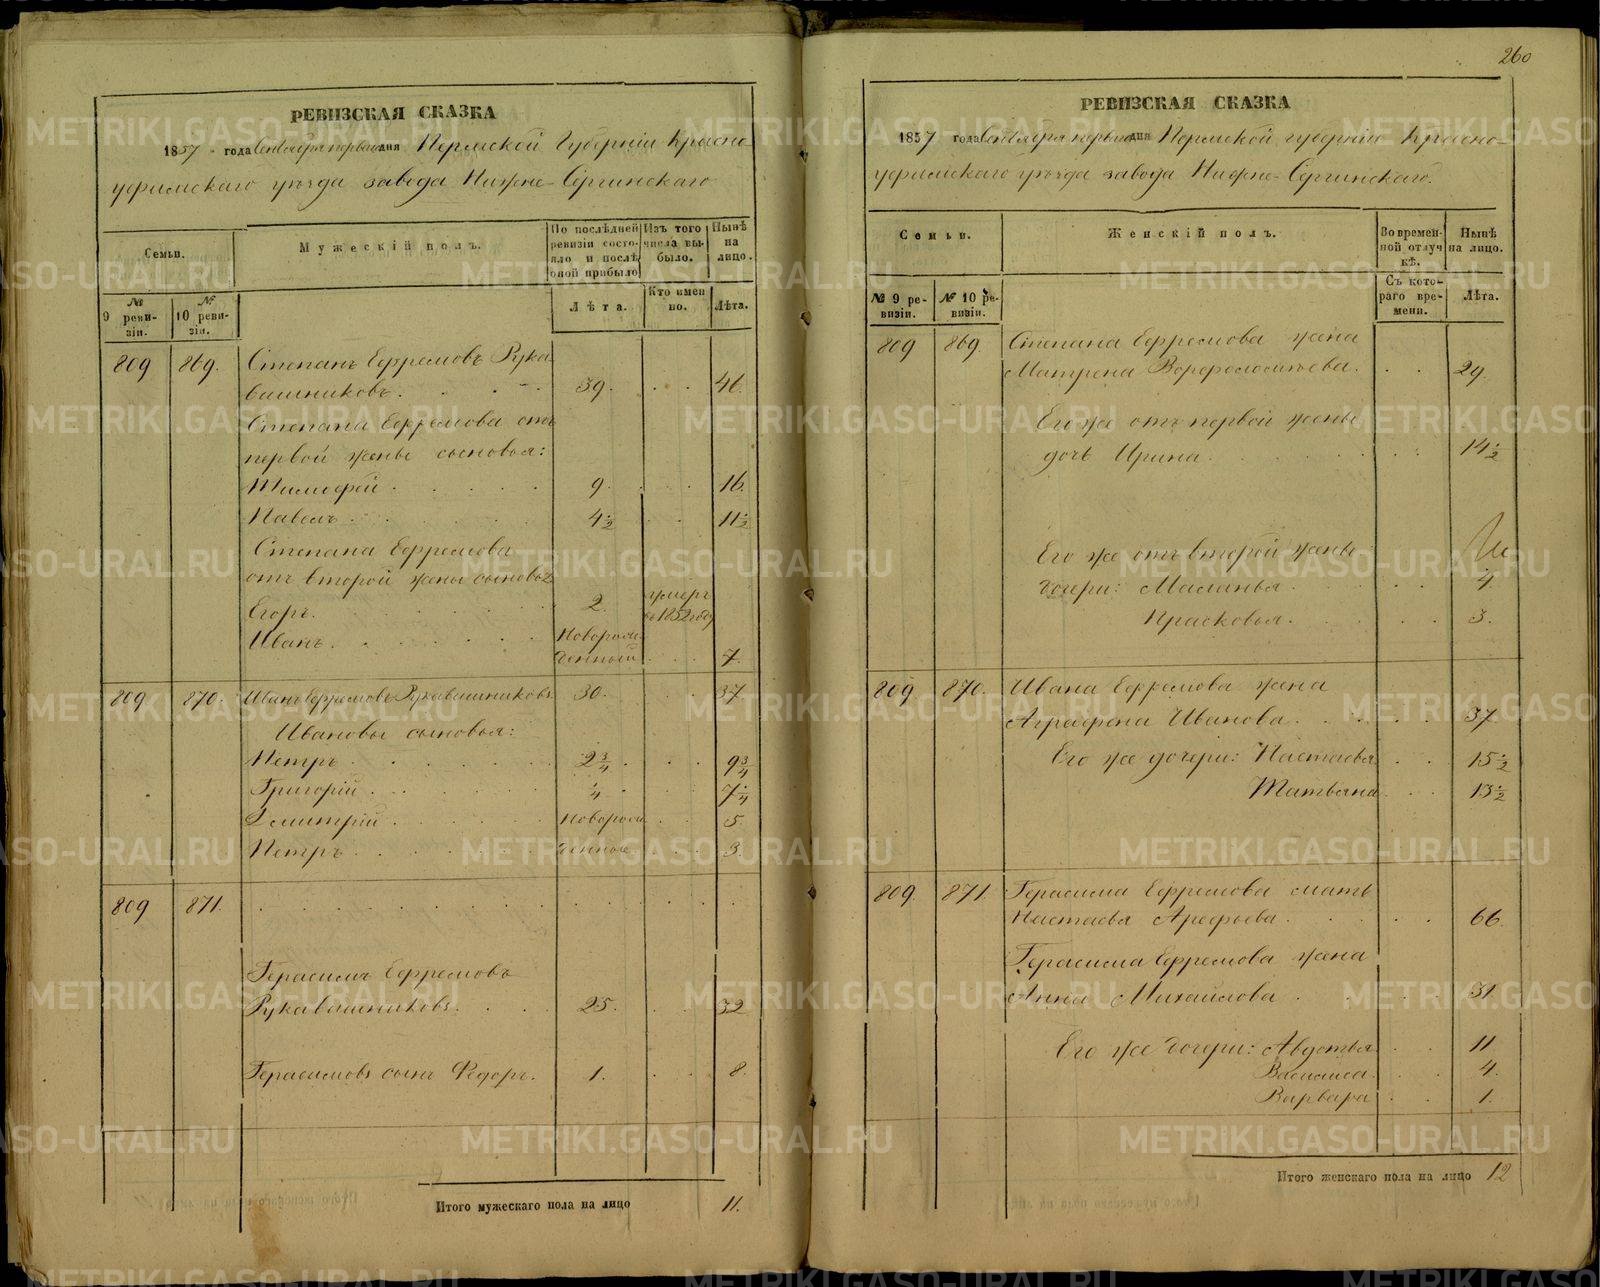 РЕВИЗСКАЯ СКАЗКА
1857 года Сентября перваго дня Пермской Губерніи Красно-
уфимскаго уѣзда завода Нижне-Сергинскаго
Семьи.
Мужескій полъ.
По послѣдней ревизіи состояло и послѣ оной прибыло
Изъ того числа выбыло.
Нынѣ на лицо.
№ 9 ревизіи.
№ 10 ревизіи.
Лѣта.
Кто именно.
Лѣта.
809 869. Степанъ Ефремовъ Рука-
вишниковъ. 39. 46.
Степана Ефремова отъ
первой жены сыновья:
Тимофей 9. 16.
Павелъ 4 1/2 11 1/2
Степана Ефремова
отъ второй жены сыновья
Егоръ. 2. умеръ въ 1852 году
Иванъ. Новорож-
денный 7.
809 870. Иванъ Ефремовъ Рукавишниковъ 30. 37
Ивановы сыновья:
Петръ 2 3/4 9 3/4
Григорій 1/4 7 1/4
Дмитрій Новорож- 5.
Петръ денные 3.
809 871.
Герасимъ Ефремовъ
Рукавишниковъ. 25. 32
Герасимовъ сынъ Федоръ. 1. 8.
Итого мужескаго пола на лицо 11.
260
РЕВИЗСКАЯ СКАЗКА
1857 года Сентября перваго дня Пермской губерніи Красно-
уфимскаго уѣзда завода Нижне-Сергинскаго.
Семьи.
Женскій полъ.
Во временной отлучкѣ.
Нынѣ на лицо.
№ 9 ревизіи.
№ 10 ревизіи.
Съ котораго времени.
Лѣта.
809 869. Степана Ефремова жена
Матрена Ворфоломѣева. 29.
Его же отъ первой жены
дочь Ирина 14 1/2
Его же отъ второй жены
дочери: Маланья 4
Прасковья 3.
809 870. Ивана Ефремова жена
Аграфена Иванова. 37
Его же дочери: Настасья 15 1/2
Татьяна 13 1/2
809. 871. Герасима Ефремова мать
Настасья Арефьева 66.
Герасима Ефремова жена
Анна Михайлова 31.
Его же дочери: Авдотья 11
Василиса 4.
Варвара 1.
Итого женскаго пола на лицо 12
METRIKI.GASO-URAL.RU